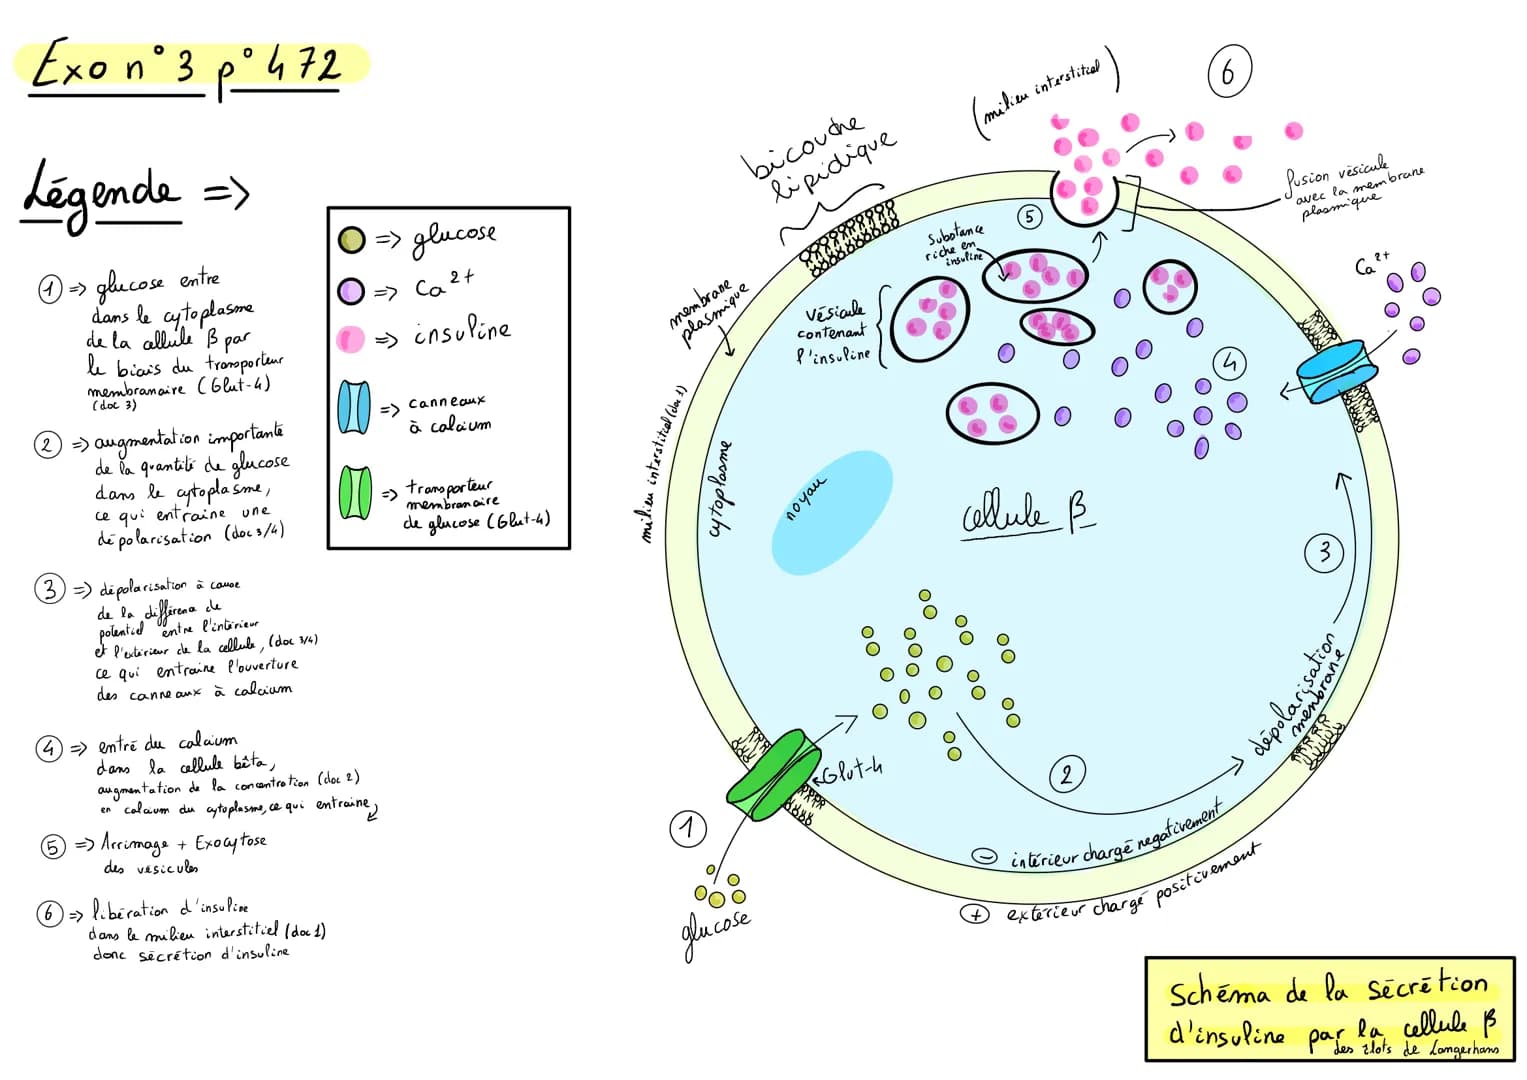 Exo n°3 p°472
Légende =>
① => glucose entre
dans le cytoplasme
de la cellule β par
le biais du transporteur
membranaire (Glut-4)
(doc 3)
② => augmentation importante
de la quantité de glucose
dans le cytoplasme,
ce qui entraine une
dépolarisation (doc 3/4)
③ => dépolarisation à cause
de la différence de
potentiel entre l'intérieur
et l'extérieur de la cellule, (doc 3/4)
ce qui entraine l'ouverture
des canneaux à calcium
④ => entré du calcium
dans la cellule bêta,
augmentation de la concentration (doc 2)
en calcium du cytoplasme, ce qui entraine
⑤ => Arrimage + Exocytose
des vésicules
⑥ => libération d'insuline
dans le milieu interstitiel (doc 1)
donc sécrétion d'insuline
=> glucose
=> Ca²⁺
=> insuline
=> canneaux
à calcium
=> transporteur
membranaire
de glucose (Glut-4)
bicouche
lipidique
(milieu interstitiel)
⑥
fusion vésicule
avec la membrane
plasmique
⑤
Substance
riche en
insuline
membrane
plasmique
Vésicule
contenant
l'insuline
Ca²⁺
④
milieu interstitiel (doc 1)
cytoplasme
noyau
cellule β
③
dépolarisation
menbrane
②
Glut-4
①
glucose
- intérieur chargé négativement
+ extérieur chargé positivement
Schéma de la sécrétion
d'insuline par la cellule β
des îlots de Langerhans